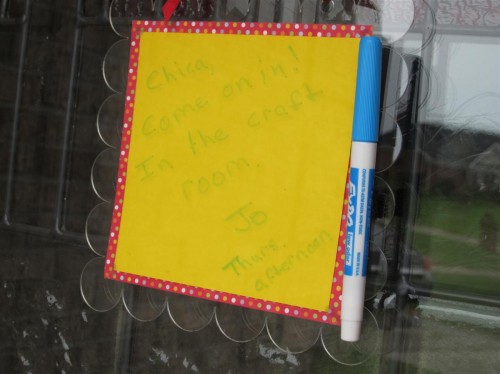 Chica,
Come on in!
In the craft
room.
Jo
Thurs.
afternoon
EXPO